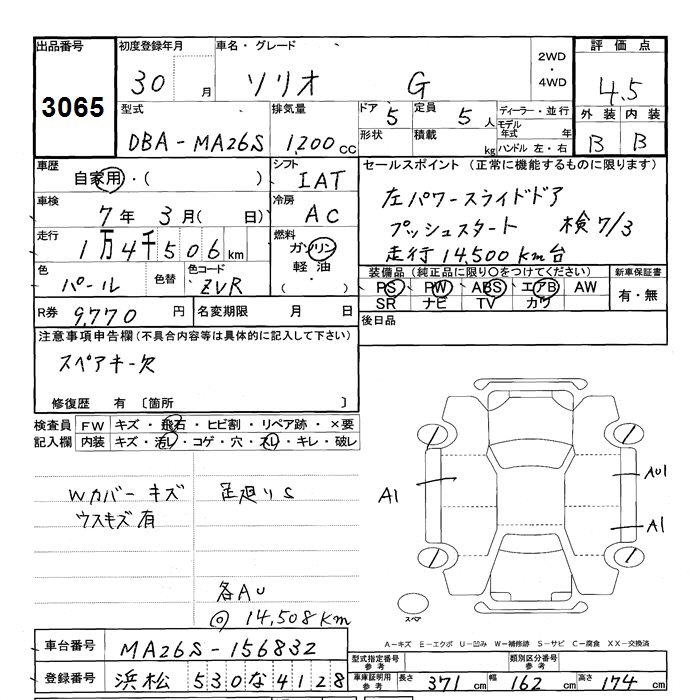 出品番号 初度登録年月 車名・グレード 2WD・4WD 評価点
3065 30 月 ソリオ G 4.5
型式 排気量 ドア 定員 ディーラー・並行 外装 内装
DBA-MA26S 1,200 cc 5 5人 モデル年式 年 B B
形状 積載 kg ハンドル 左・右
車歴 シフト セールスポイント (正常に機能するものに限ります)
自家用・( ) IAT 左パワースライドドア
車検 冷房 プッシュスタート 検7/3
7年 3月( 日) AC 走行14,500km台
走行 燃料
1万4千506km ガソリン・軽油・( )
色 色替 色コード 装備品 (純正品に限り○をつけてください) 新車保証書
パール ZVR PS PW ABS エアB AW 有・無
SR ナビ TV カワ
R券 9,770円 名変期限 月 日 後日品
注意事項申告欄(不具合内容等は具体的に記入して下さい)
スペアキー欠
修復歴 有 〔箇所 〕
検査員記入欄 FW キズ・飛石・ヒビ割・リペア跡・×要
内装 キズ・汚レ・コゲ・穴・スレ・キレ・破レ
Wカバーキズ 足廻りS
ウスキズ有
A1 AU1
A1
各AU
◎14,508km
スペア
A-キズ E-エクボ U-凹み W-補修跡 S-サビ C-腐食 XX-交換済
車台番号 MA26S-156832 型式指定番号 参考 類別区分番号 参考
登録番号 浜松 530な4128 車庫証明用 参考 長さ 371cm 幅 162cm 高さ 174cm